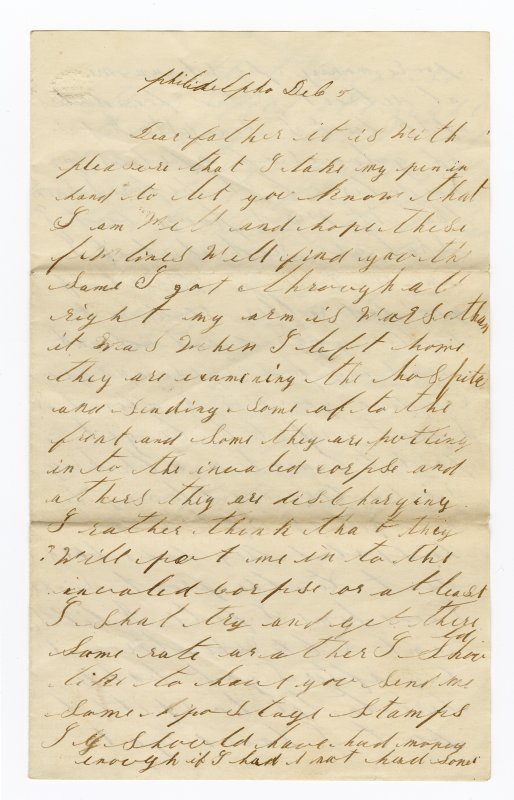 philidelpha Dec 5
Dear father it is with
pleasure that I take my pen in
hand to let you know that
I am well and hope these
few lines will find you th
same I got through all
right my arm is worse than
it was when I left home
they are examining the hospital
and sending some of to the
front and some they are putting
in to the invaled corpse and
others they are discharging
I rather think that they
will put me in to the
invaled corpse or at least
I shal try and get there
some rate or other I shoud
like to have you send me
some postage stamps
I should have had money
enough if I had not had some